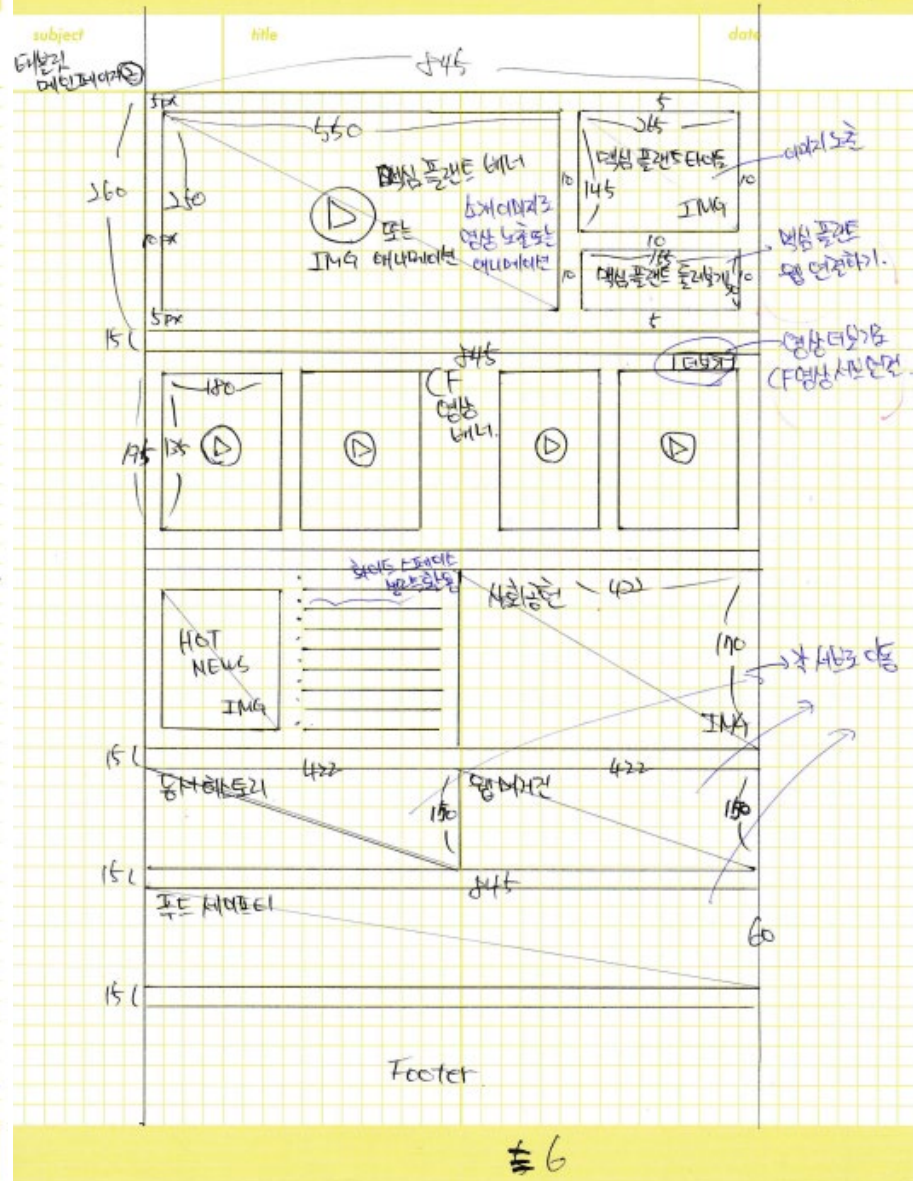 subject title date
태블릿
메인페이지②
845
5px
550
5
265
260
250
맥심플랜트 배너
또는
IMG 애니메이션
소개이미지로
영상 노출또는
애니메이션
10
145
맥심플랜트타이틀
IMG
10
이미지노출
10px
10
165
10
맥심플랜트 둘러보기
10
맥심플랜트
웹 연결하기.
5px
5
15
845
더보기
영상더보기로
CF영상 서브연결.
180
CF
영상
배너.
195
135
화이트스페이스
HOT
NEWS
IMG
사회공헌
422
170
IMG
각 서브로 이동
15
422
422
동서히스토리
150
웹매거진
150
15
845
푸드 세이프티
60
15
Footer
6